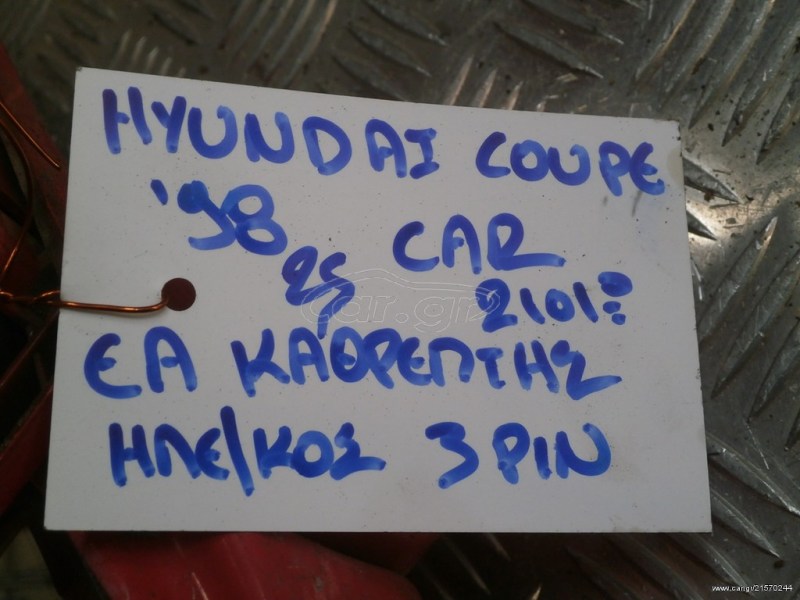 HYUNDAI COUPE
'98 ως CAR
2101:
ΕΑ ΚΑΘΡΕΠΤΗΣ
ΗΛΕ/ΚΟΣ 3 PIN
car.gr
www.car.gr/21570244